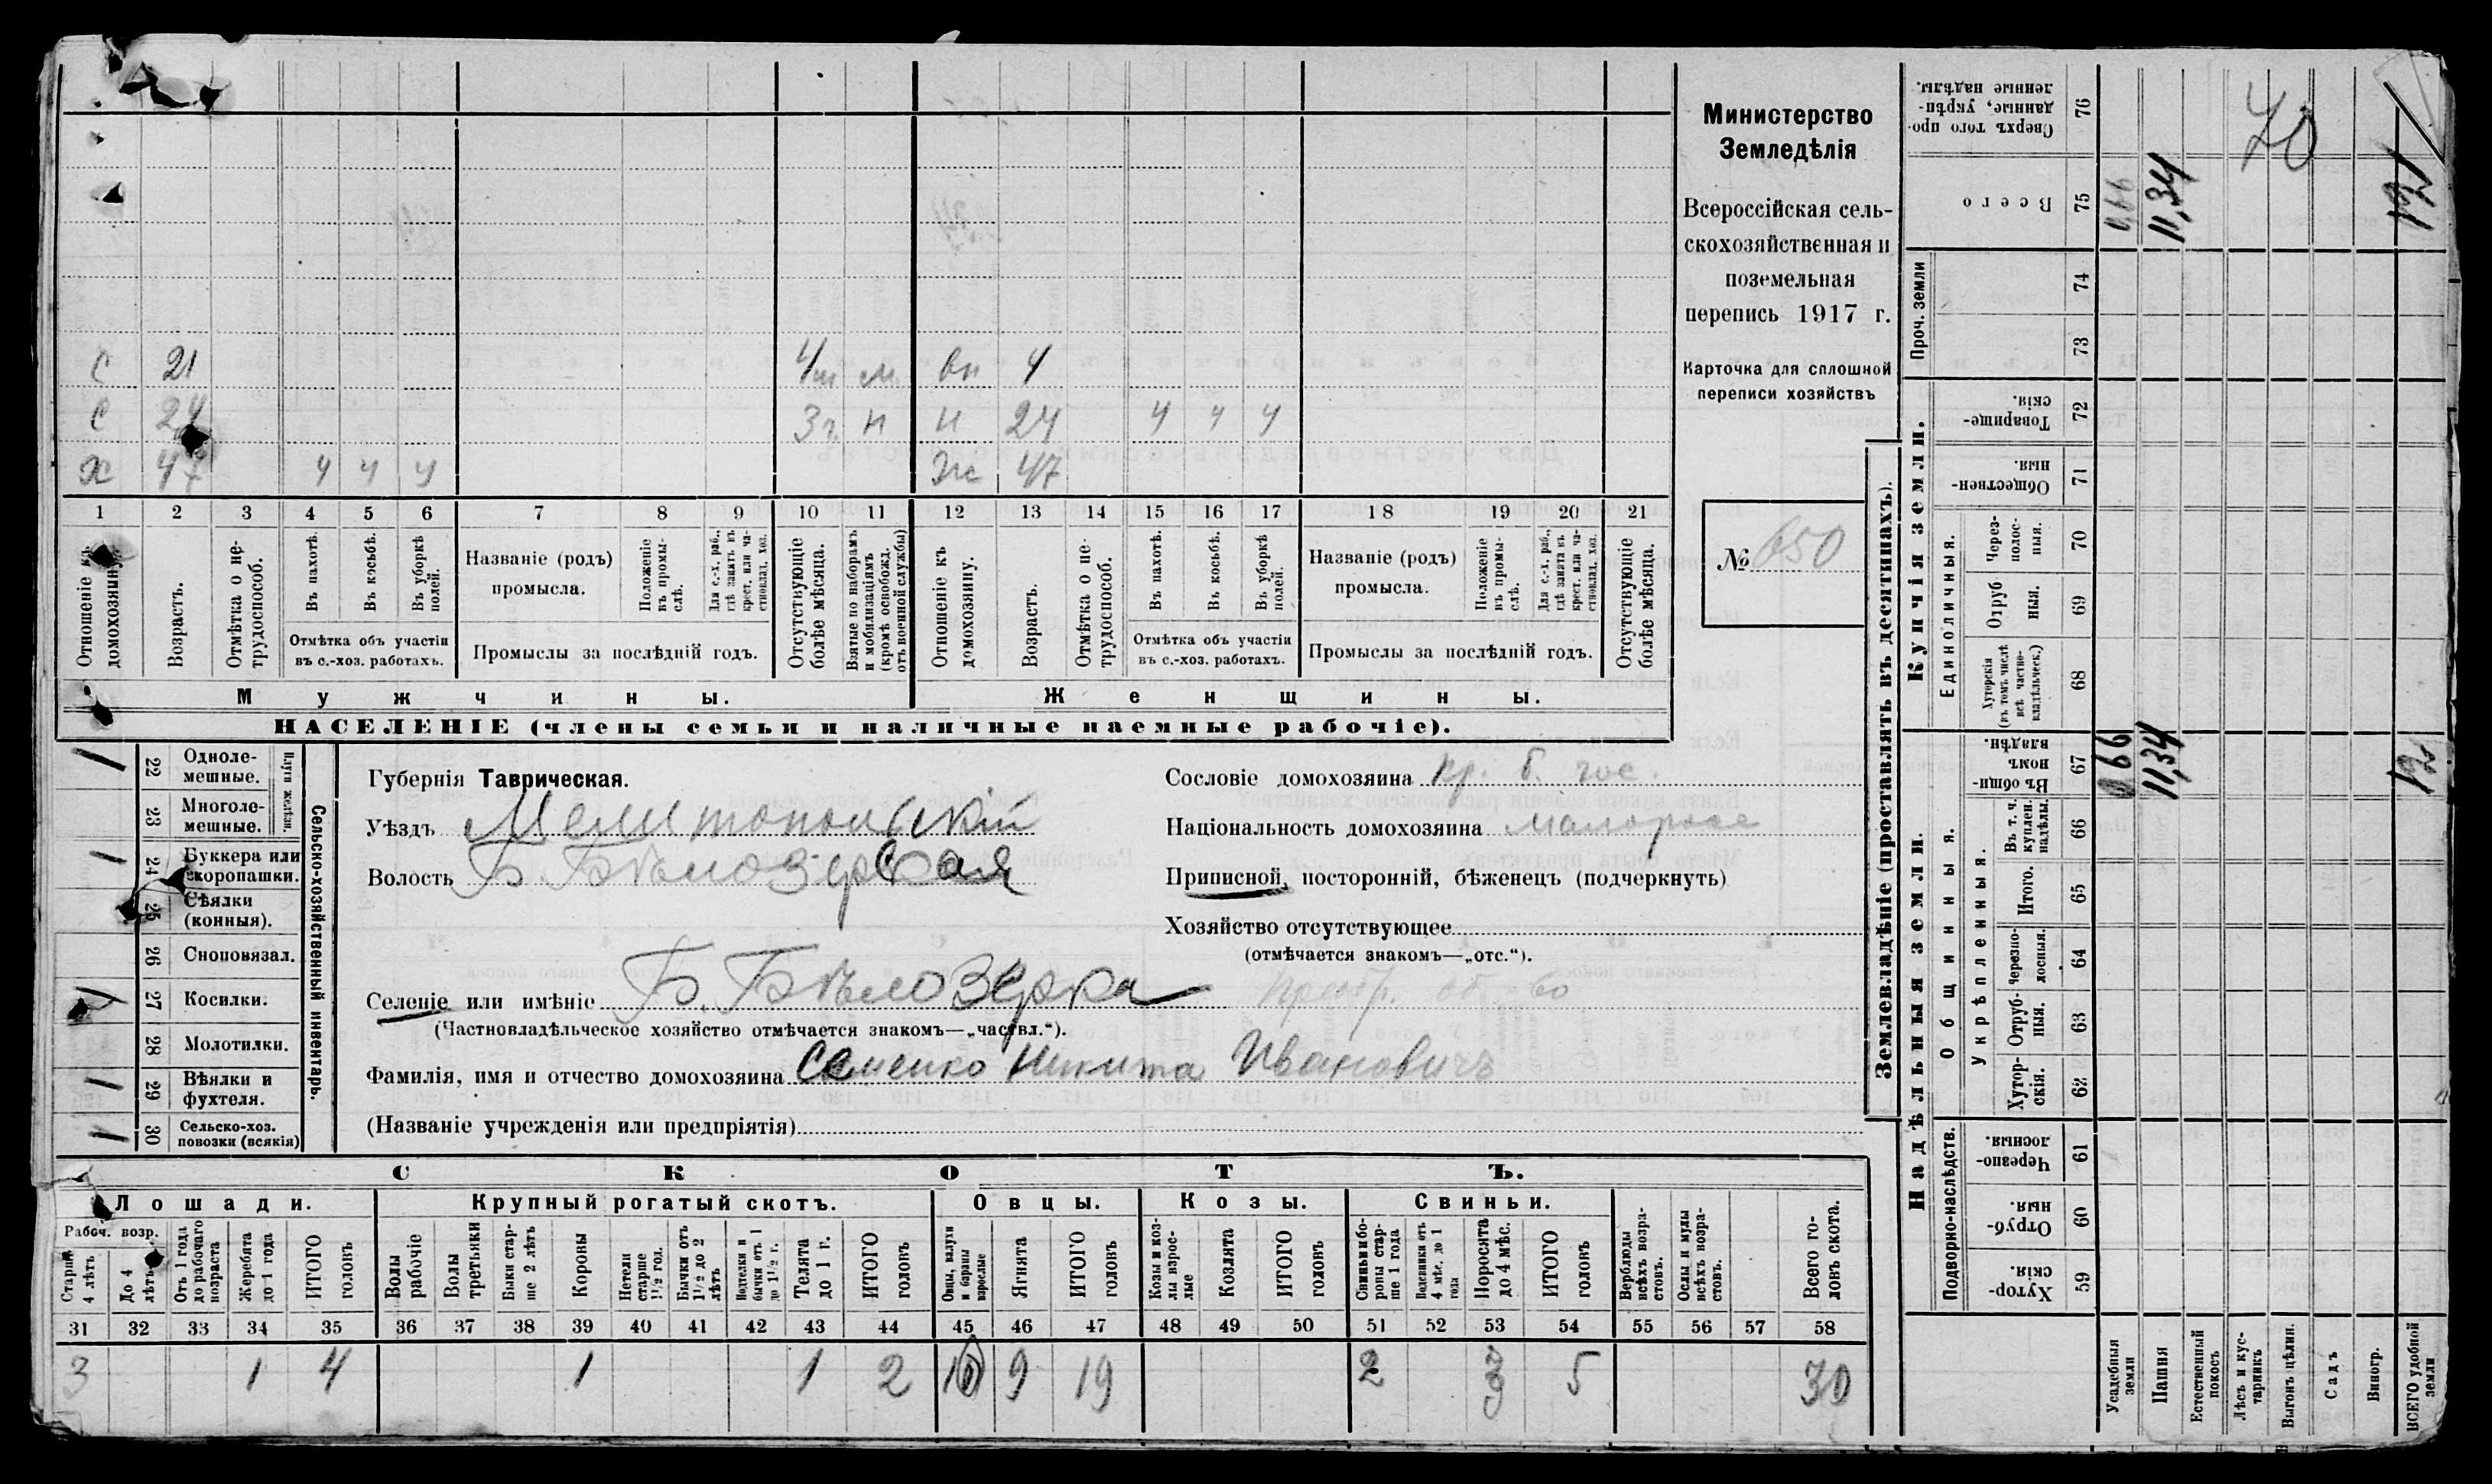 С 21 4 м. вн 4
С 24 3 г. н н 24 ч ч ч
Х 47 ч ч ч Ж 47
1 2 3 4 5 6 7 8 9 10 11 12 13 14 15 16 17 18 19 20 21
Отношеніе къ домохозяину.
Возрастъ.
Отмѣтка о не-трудоспособ.
Въ пахотѣ.
Въ косьбѣ.
Въ уборкѣ полей.
Отмѣтка объ участіи
въ с.-хоз. работахъ.
Названіе (родъ)
промысла.
Положеніе въ промы-слѣ.
Для с.-х. раб., гдѣ занятъ въ крест. или ча-стновлад. хоз.
Промыслы за послѣдній годъ.
Отсутствующіе болѣе мѣсяца.
Взятые по наборамъ и мобилизаціямъ (кромѣ освобожд. отъ военной службы)
Отношеніе къ домохозяину.
Возрастъ.
Отмѣтка о не-трудоспособ.
Въ пахотѣ.
Въ косьбѣ.
Въ уборкѣ полей.
Отмѣтка объ участіи
въ с.-хоз. работахъ.
Названіе (родъ)
промысла.
Положеніе въ промы-слѣ.
Для с.-х. раб., гдѣ занята въ крест. или ча-стновлад. хоз.
Промыслы за послѣдній годъ.
Отсутствующіе болѣе мѣсяца.
Мужчины.
Женщины.
НАСЕЛЕНІЕ (члены семьи и наличные наемные рабочіе).
Министерство
Земледѣлія
Всероссійская сель-
скохозяйственная и
поземельная
перепись 1917 г.
Карточка для сплошной
переписи хозяйствъ
№ 650
Сельско-хозяйственный инвентарь.
Плуги желѣзн.
1 22 Одноле-мешные.
23 Многоле-мешные.
1 24 Буккера или скоропашки.
25 Сѣялки (конныя).
26 Сноповязал.
1 27 Косилки.
28 Молотилки.
1 29 Вѣялки и фухтеля.
1 30 Сельско-хоз. повозки (всякія)
Губернія Таврическая.
Уѣздъ Мелитопольскій
Волость Б. Бѣлозерская
Селеніе или имѣніе Б. Бѣлозерка
(Частновладѣльческое хозяйство отмѣчается знакомъ—„частвл.“).
Фамилія, имя и отчество домохозяина Семенко Никита Ивановичъ
(Названіе учрежденія или предпріятія)
Сословіе домохозяина кр. б. гос.
Національность домохозяина малороссъ
Приписной, посторонній, бѣженецъ (подчеркнуть)
Хозяйство отсутствующее
(отмѣчается знакомъ—„отс.“).
СКОТЪ.
Лошади. Крупный рогатый скотъ. Овцы. Козы. Свиньи.
Рабоч. возр.
Старше 4 лѣтъ
До 4 лѣтъ
Отъ 1 года до рабочаго возраста
Жеребята до 1 года
ИТОГО головъ
Волы рабочіе
Волы третьяки
Быки стар-ше 2 лѣтъ
Коровы
Нетели старше 1½ год.
Бычки отъ 1½ до 2 лѣтъ
Подтелки и бычки отъ 1 до 1½ г.
Телята до 1 г.
ИТОГО головъ
Овцы, валухи и бараны взрослые
Ягнята
ИТОГО головъ
Козы и коз-лы взрос-лые
Козлята
ИТОГО головъ
Свиньи и бо-ровы стар-ше 1 года
Подсвинки отъ 4 мѣс. до 1 года
Поросята до 4 мѣс.
ИТОГО головъ
Верблюды всѣхъ возра-стовъ.
Ослы и мулы всѣхъ возра-стовъ.
Всего го-ловъ скота.
31 32 33 34 35 36 37 38 39 40 41 42 43 44 45 46 47 48 49 50 51 52 53 54 55 56 57 58
3 1 4 1 1 2 10 9 19 2 3 5 30
Землевладѣніе (проставлять въ десятинахъ).
Надѣльныя земли.
Купчія земли.
Проч. земли
Подворно-наслѣдств.
Общинныя.
Укрѣпленныя.
Единоличныя.
Сверхъ того про-данные, укрѣп-ленные надѣлы. 76
Всего 75 0,66 11,34 12
74
73
Товарище-скія. 72
Обществен-ныя. 71
Через-полос-ныя. 70
Отруб-ныя. 69
Хуторскія (въ томъ числѣ всѣ частно-владѣльческ.) 68
Въ общин-номъ владѣн. 67 0,66 11,34 12
Въ т. ч. куплен. надѣлы. 66
Итого. 65
Черезпо-лосныя. 64
Отруб-ныя. 63
Хутор-скія. 62
Черезпо-лосныя. 61
Отруб-ныя. 60
Хутор-скія. 59
Усадебныя земли
Пашня
Естественный покосъ
Лѣсъ и кус-тарникъ
Выгонъ цѣлин.
Садъ
Виногр.
ВСЕГО удобной земли
70